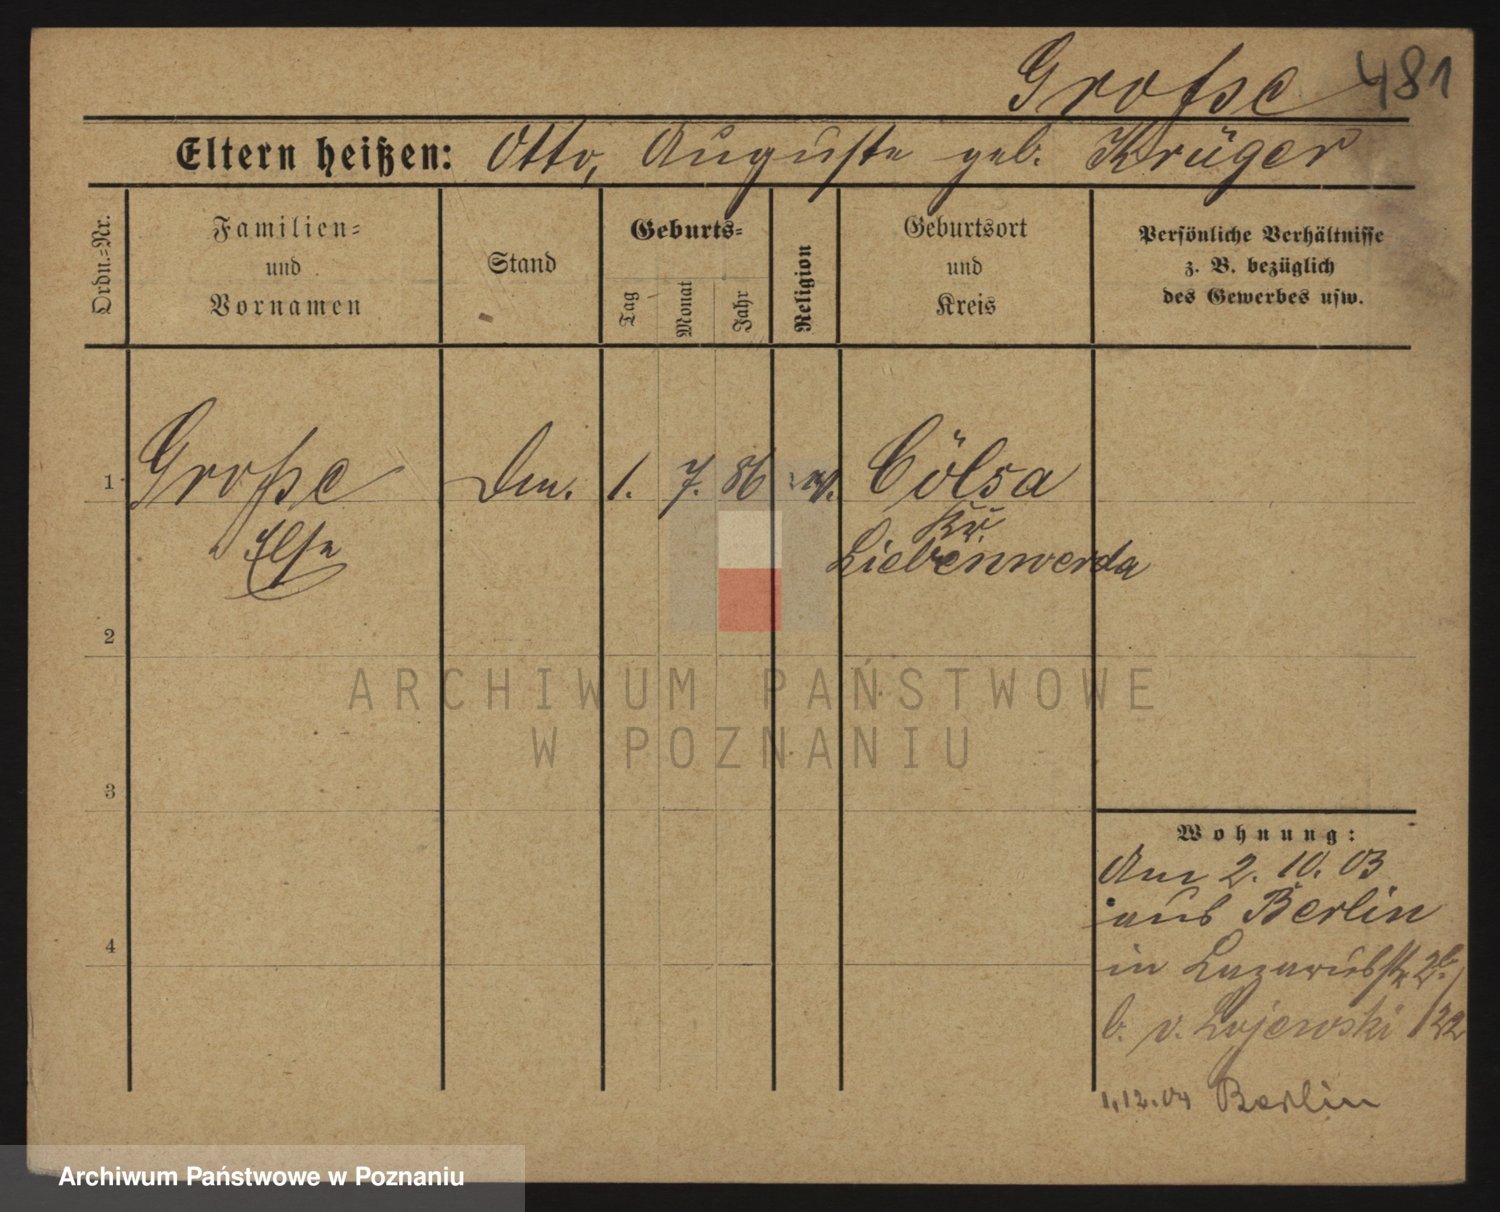 Grosse 481
Eltern heißen: Otto, Auguste geb. Krüger
Ordn.-Nr.
Familien-
und
Vornamen
Stand
Geburts-
Tag
Monat
Jahr
Religion
Geburtsort
und
Kreis
Persönliche Verhältnisse
z. B. bezüglich
des Gewerbes usw.
1 Große 1. 7. 86 Cölsa
Else Kr.
Liebenwerda
2
ARCHIWUM PAŃSTWOWE
W POZNANIU
3
Wohnung:
Am 2. 10. 03
aus Berlin
4
in Lazarusstr.
b. v. Lojewski
1.12.04 Berlin
Archiwum Państwowe w Poznaniu